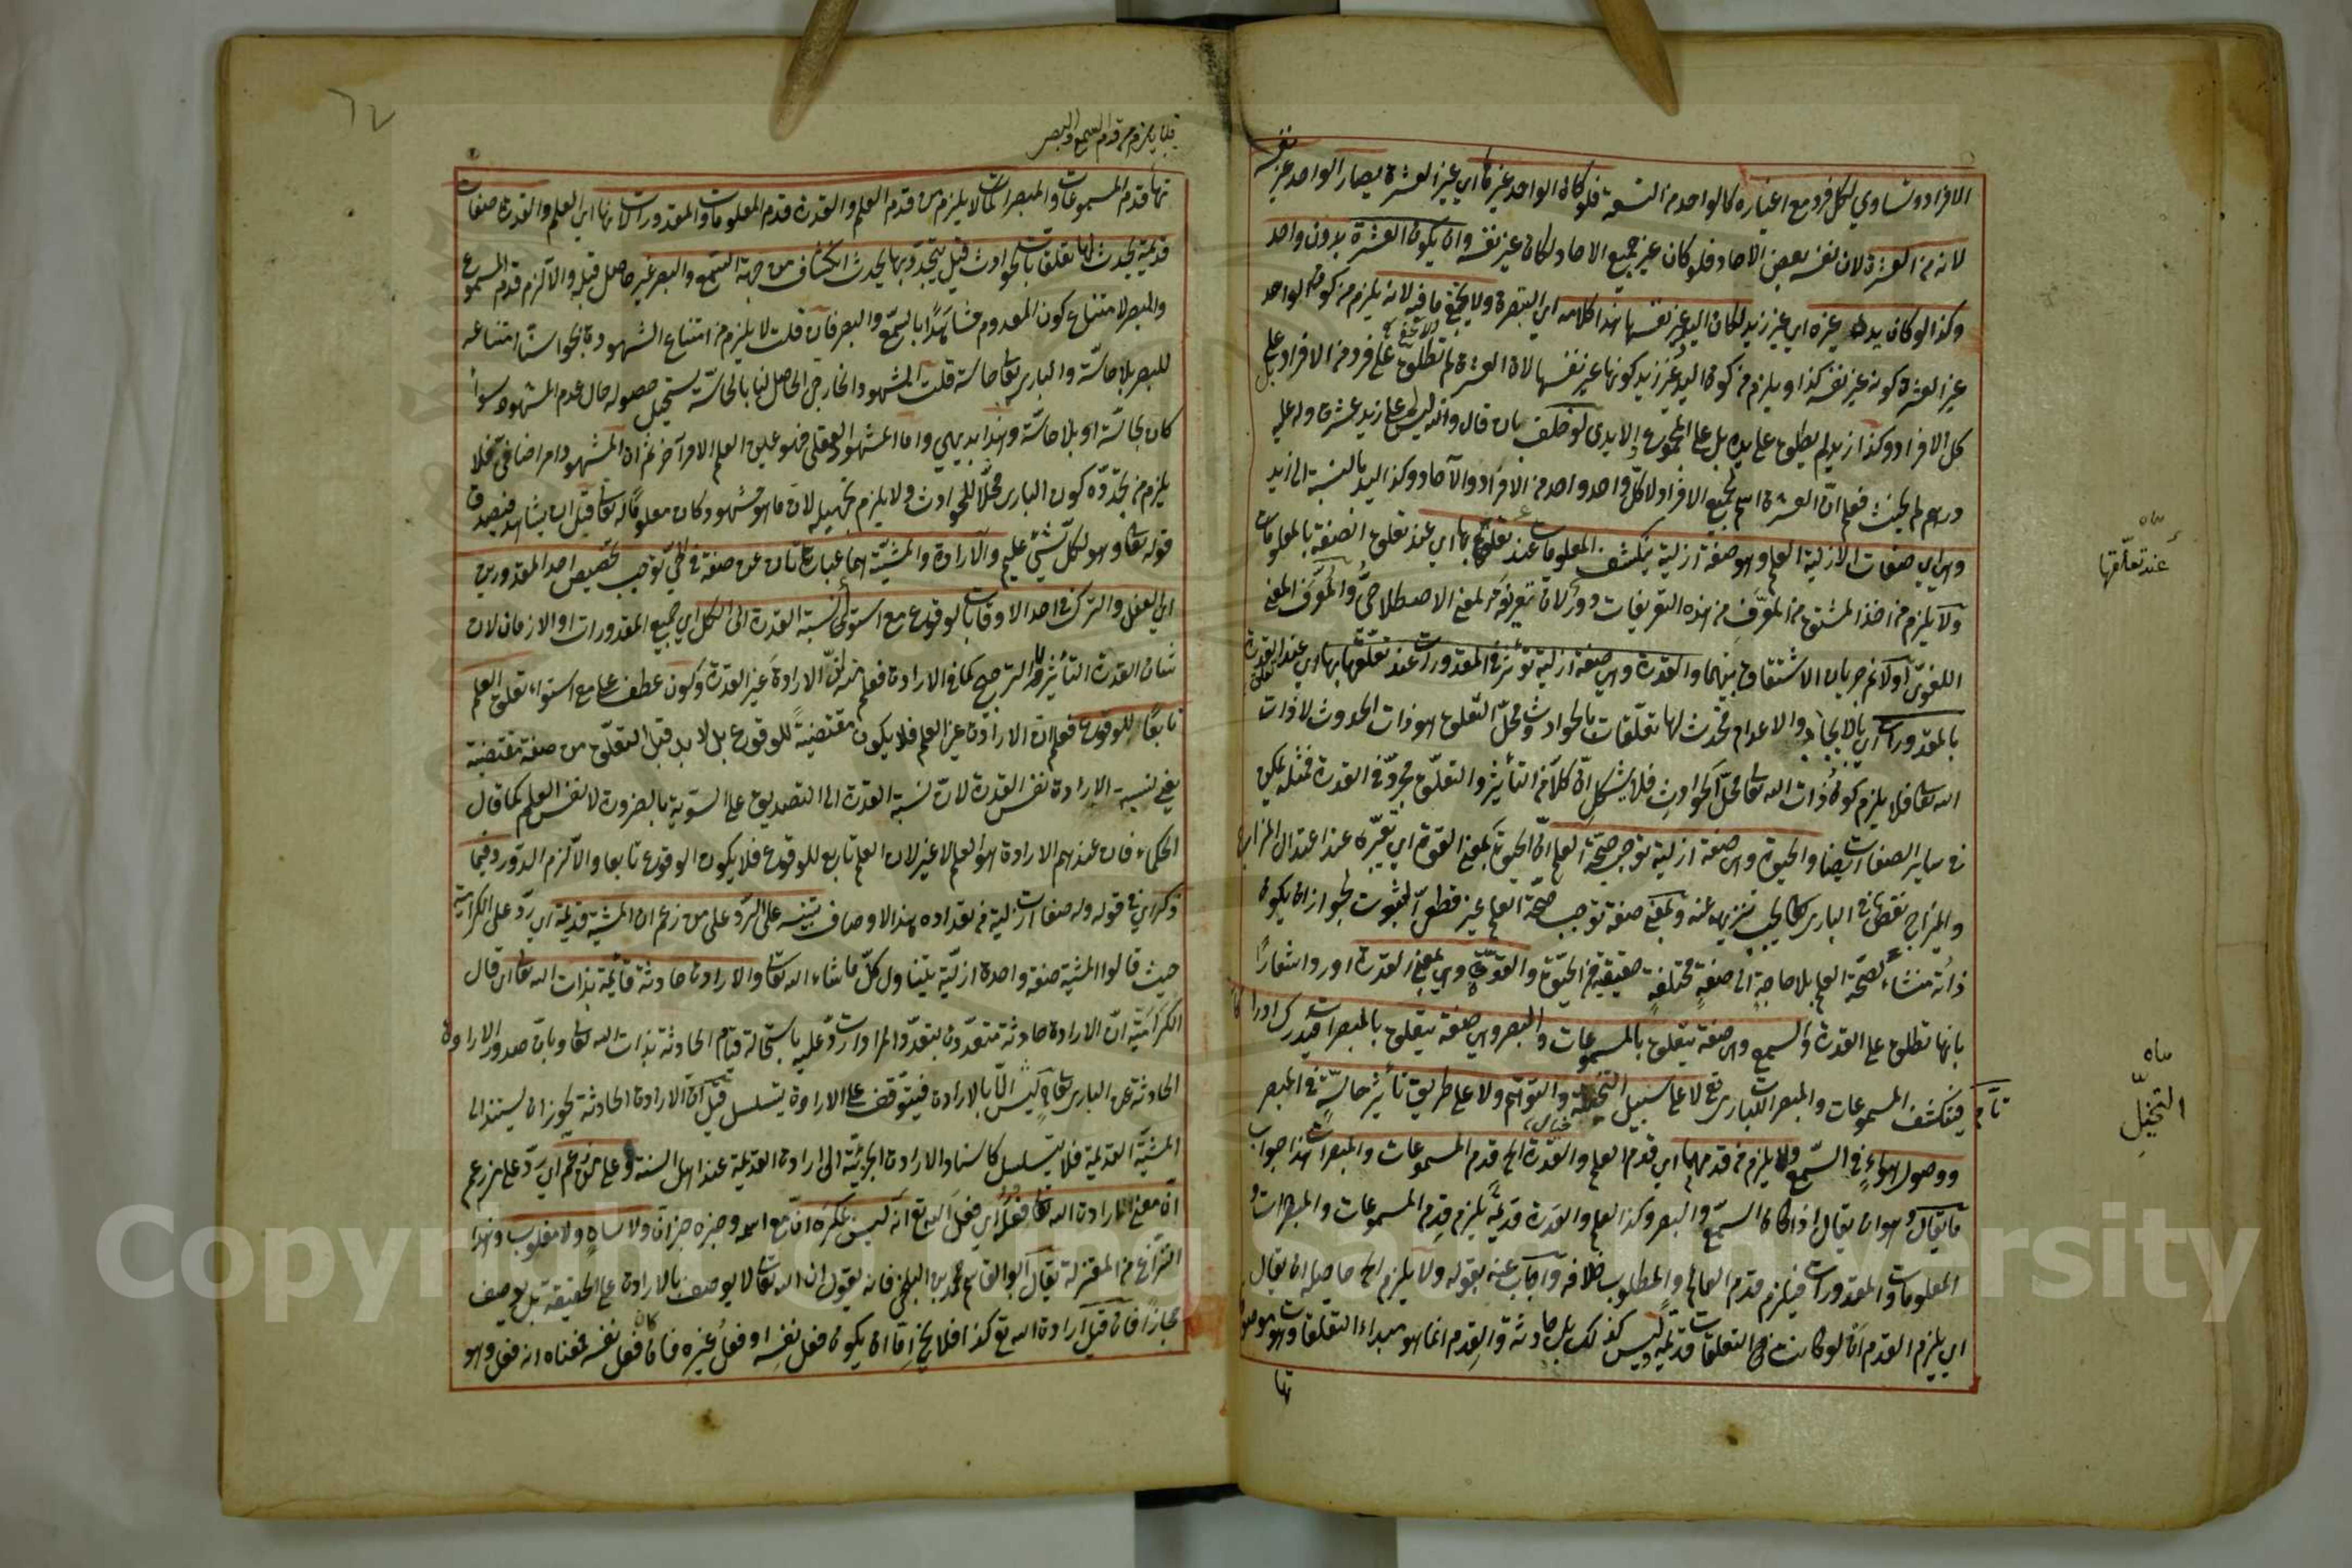 الافراد وتساوي لكل فرد مع اغياره كالواحد من التسعة فلو كان الواحد غيرها اي غير العشرة يصار الواحد غير نفسه
لانه من العشرة لان نفسه بعض الاحاد فلو كان غير جميع الاحاد لكان غير نفسه وان يكون العشرة بدون واحد
وكذا لو كان يد غيره اي غير زيد لكان اليد غير نفسها هذا كلامه اي التبصرة ولا يخفى ما فيه لانه يلزم من كون الواحد
غير العشرة كونه غير نفسه كذا ويلزم من كون اليد غير زيد كونها غير نفسها لان العشرة لم تطلق على فرد من الافراد بل على
كل الافراد وكذا زيد لم يطلق على يده بل على المجموع لو حلف بان قال والله ليس على زيد عشرة وله عليه
درهم لم يحنث فعلم ان العشرة اسم لجميع الافراد لا كل واحد واحد من الافراد والآحاد وكذا اليد بالنسبة الى زيد
وهي اي صفات الازلية العلم وهو صفة ازلية ينكشف المعلومات عند تعلقها بها اي عند تعلق الصفة بالمعلومات
ولا يلزم من اخذ المشتق من المعرف من هذه التعريفات دور لان تعريف لمعنى الاصطلاحي والمعرف المعنى
اللغوي اولا ثم جريان الاشتقاق بينهما والقدرة وهي صفة ازلية تؤثر في المقدورات عند تعلقها بها اي عند تعلق القدرة
بالمقدورات اي بالايجاد والاعدام فحدث لها تعلقات بالحوادث ومحل التعلق هو ذات الحدوث لا ذات
الله تعا فلا يلزم كون ذات الله تعا محل الحوادث فلا يشكل ان كلا من التأثير والتعلق متجدد في القدرة فمثله يمكن
في ساير الصفات ايضا والحيوة وهي صفة ازلية توجب صحة العلم اي الحيوة بمعنى القوة اي تغيره عند اعتدال المزاج
والمزاج نقص في الباري تعا يجب تنزيهه عنه وبمعنى صفة توجب صحة العلم غير قطعي الثبوت لجواز ان يكون
ذاته منشاء لصحة العلم بلا حاجة الى صفة مختلفة حقيقية من الحيوة والقوة وهي بمعنى القدرة اورد اشعارا
بانها تطلق على القدرة والسمع وهي صفة يتعلق بالمسموعات والبصر وهي صفة يتعلق بالمبصرات فتدرك ادراكا
تاما فينكشف المسموعات والمبصرات للباري تع لا على سبيل التخيل والتوهم ولا على طريق تأثير حاسة في المبصر
ووصول هواء في السمع ولا يلزم من قدمهما اي قدم العلم والقدرة الخ قدم المسموعات والمبصرات هذا جواب
ما يقال وهو ان يقال اذا كان السمع والبصر وكذا العلم والقدرة قديمة يلزم قدم المسموعات والمبصرات و
المعلومات والمقدورات فيلزم قدم العالم والمطلوب خلافه واجاب عنه بقوله ولا يلزم الخ حاصله ان يقال
اي يلزم القدم ان لو كانت هي التعلقات قديمة وليس كذلك بل حادثة والقدم انما هو مبداء التعلقات وهو
تها
عند تعلقها
التخيل
فلا يلزم من قدم السمع والبصر
تها قدم المسموعات والمبصرات كما لا يلزم من قدم العلم والقدرة قدم المعلومات والمقدورات لانها اي العلم والقدرة صفات
قديمة يحدث لها تعلقات بالحوادث قيل يتجدد بها يحدث انكشاف من جهة السمع والبصر غير حاصل قبله والا لزم قدم المسموع
والمبصر لامتناع كون المعدوم مشاهدا بالسمع والبصر فان قلت لا يلزم من امتناع الشهود بالحواس امتناعه
للبصر بلا حاسة والباري تعا حاسة قلت المشهود الخارجي الحاصل لنا بالحاسة يستحيل حصوله حال عدم المشهود سواء
كان بحاسة او بلا حاسة وهذا بديهي واما المشهود العقلي فهو عين العلم لا امر آخر ثم ان المشهود امر اضافي فلا
يلزم من تجدده كون الباري محلا للحوادث ولا يلزم تجهيله لان ما هو مشهود كان معلوما له تعا قبل ان يشاهد فيصدق
قوله تعا وهو لكل شئ عليم والارادة والمشية هما عبارتان عن صفة في الحي توجب تخصيص احد المقدورين
اي الفعل والترك في احد الاوقات بالوقوع مع استواء نسبة القدرة الى الكل اي جميع المقدورات او الازمان لان
شان القدرة التأثير لا الترجيح كما في الارادة فعلم منه ان الارادة غير القدرة وكون عطف على مع استواء تعلق العلم
تابعا للوقوع فعلم ان الارادة غير العلم فلا يكون مقتضية للوقوع بل لا بد قبل التعلق من صفة مقتضية
يعني ليست الارادة نفس القدرة لان نسبة القدرة الى التصديق على السوية بالضرورة لا نفس العلم كما قال
الحكماء فان عندهم الارادة هو العلم لا غير لان العلم تابع للوقوع فلا يكون الوقوع تابعا والا لزم الدور وفيما
ذكر اي في قوله وله صفات ازلية من تعداده هذا الاوصاف تنبيه على الرد على من زعم ان المشية قديمة اي رد على الكرامية
حيث قالوا المشية صفة واحدة ازلية يتناول كل ما شاء الله تعا والارادة حادثة قائمة بذات الله تعا اي قال
الكرامية ان الارادة حادثة متعددة بتعدد المرادات رد عليه باستحالة قيام الحادثة بذات الله تعا وبان صدور الارادة
الحادثة عن الباري تعا ليس الا بالارادة فيتوقف على الارادة يتسلسل قيل ان الارادة الحادثة يجوز ان يستند الى
المشية القديمة فلا يتسلسل كاسناد الارادة الجزئية الى ارادة القديمة عند اهل السنة وعلى من زعم اي رد على من زعم
ان معنى ارادة الله تعا فعله اي فعل الله تع انه ليس بمكره ولا ساه ولا مغلوب وهذا
من المعتزلة يقال ابو القاسم محمد بن البلخي فانه يقول ان الله تعا لا يوصف بالارادة على الحقيقة بل يوصف
مجازا فان قيل ارادة الله تع كذا فلا يخ اما ان يكون فعل نفسه او فعل غيره فان كان فعل نفسه فمعناه انه فعل وهو